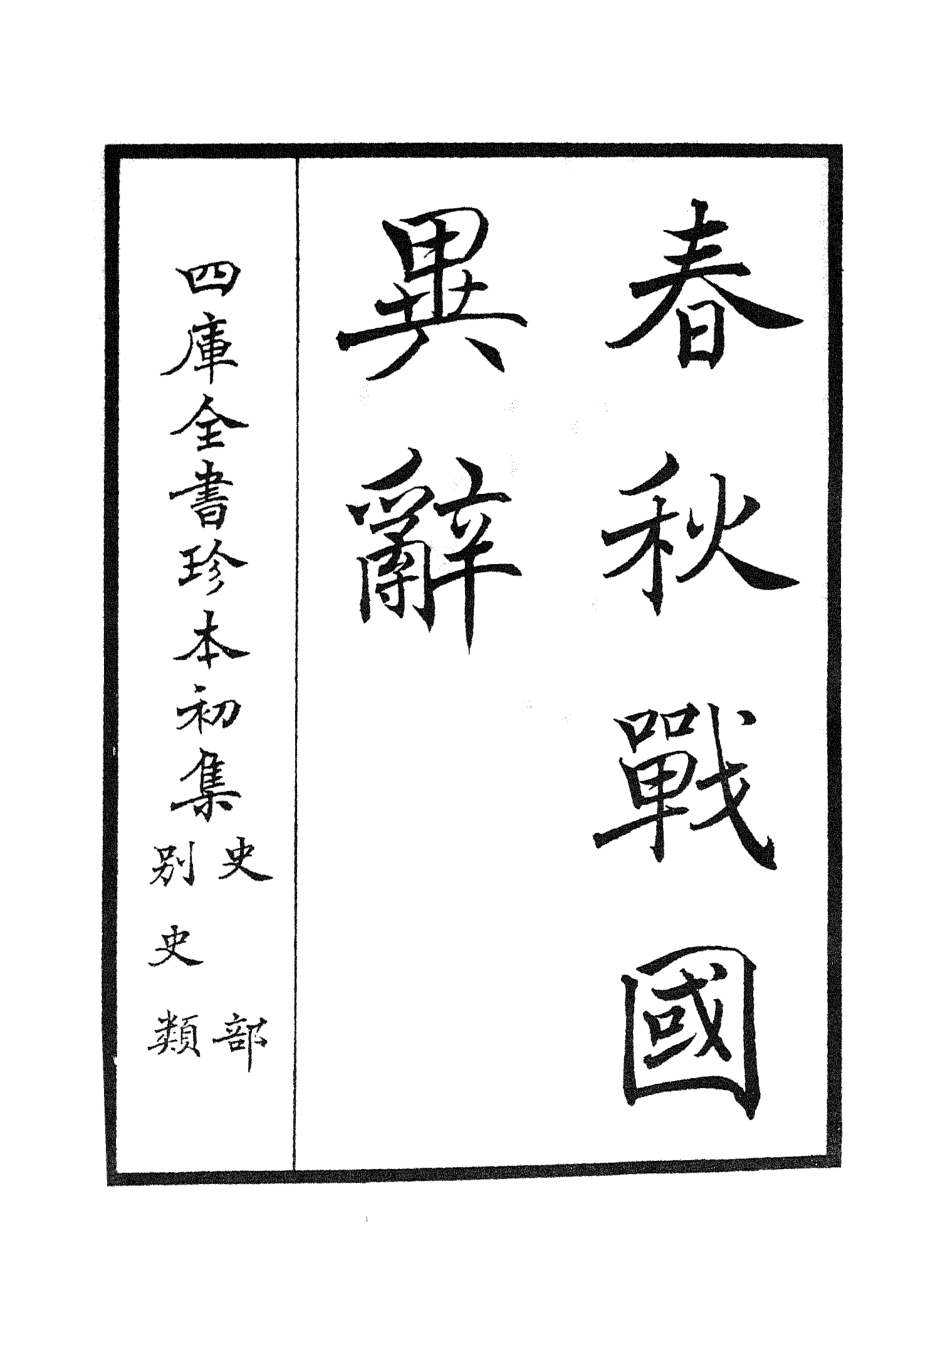 春秋戰國
異辭
四庫全書珍本初集
史部
別史類